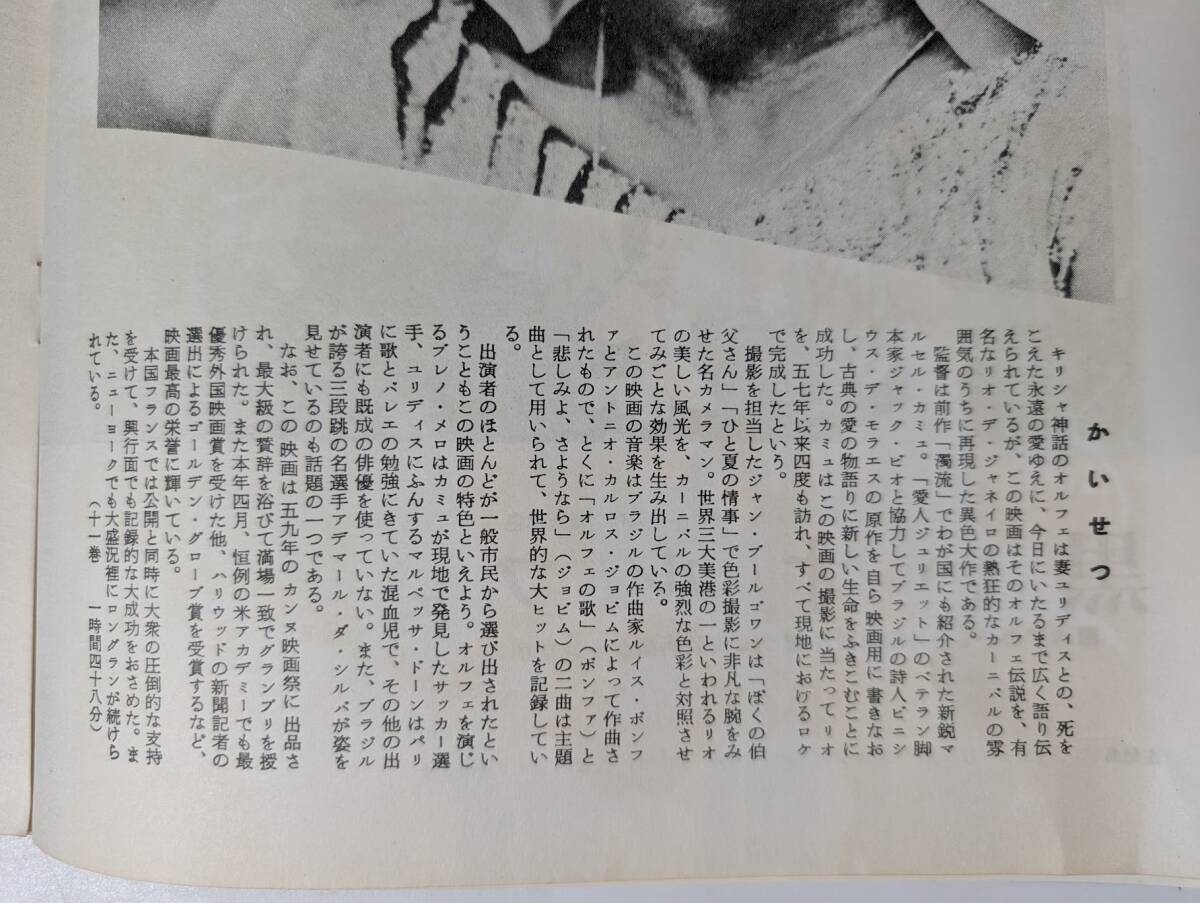 かいせつ
キリシャ神話のオルフェは妻ユリディスとの、死を
こえた永遠の愛ゆえに、今日にいたるまで広く語り伝
えられているが、この映画はそのオルフェ伝説を、有
名なリオ・デ・ジャネイロの熱狂的なカーニバルの雰
囲気のうちに再現した異色大作である。
監督は前作「濁流」でわが国にも紹介された新鋭マ
ルセル・カミュ。「愛人ジュリエット」のベテラン脚
本家ジャック・ビオと協力してブラジルの詩人ビニシ
ウス・デ・モラエスの原作を自ら映画用に書きなお
し、古典の愛の物語りに新しい生命をふきこむことに
成功した。カミュはこの映画の撮影に当たってリオ
を、五七年以来四度も訪れ、すべて現地におけるロケ
で完成したという。
撮影を担当したジャン・ブールゴワンは「ぼくの伯
父さん」「ひと夏の情事」で色彩撮影に非凡な腕をみ
せた名カメラマン。世界三大美港の一といわれるリオ
の美しい風光を、カーニバルの強烈な色彩と対照させ
てみごとな効果を生み出している。
この映画の音楽はブラジルの作曲家ルイス・ボンフ
ァとアントニオ・カルロス・ジョビムによって作曲さ
れたもので、とくに「オルフェの歌」（ボンファ）と
「悲しみよ、さようなら」（ジョビム）の二曲は主題
曲として用いられて、世界的な大ヒットを記録してい
る。
出演者のほとんどが一般市民から選び出されたとい
うこともこの映画の特色といえよう。オルフェを演じ
るブレノ・メロはカミュが現地で発見したサッカー選
手、ユリディスにふんするマルペッサ・ドーンはパリ
に歌とバレエの勉強にきていた混血児で、その他の出
演者にも既成の俳優を使っていない。また、ブラジル
が誇る三段跳の名選手アデマール・ダ・シルバが姿を
見せているのも話題の一つである。
なお、この映画は五九年のカンヌ映画祭に出品さ
れ、最大級の賛辞を浴びて満場一致でグランプリを授
けられた。また本年四月、恒例の米アカデミーでも最
優秀外国映画賞を受けた他、ハリウッドの新聞記者の
選出によるゴールデン・グローブ賞を受賞するなど、
映画最高の栄誉に輝いている。
本国フランスでは公開と同時に大衆の圧倒的な支持
を受けて、興行面でも記録的な大成功をおさめた。ま
た、ニューヨークでも大盛況裡にロングランが続けら
れている。　（十一巻　一時間四十八分）